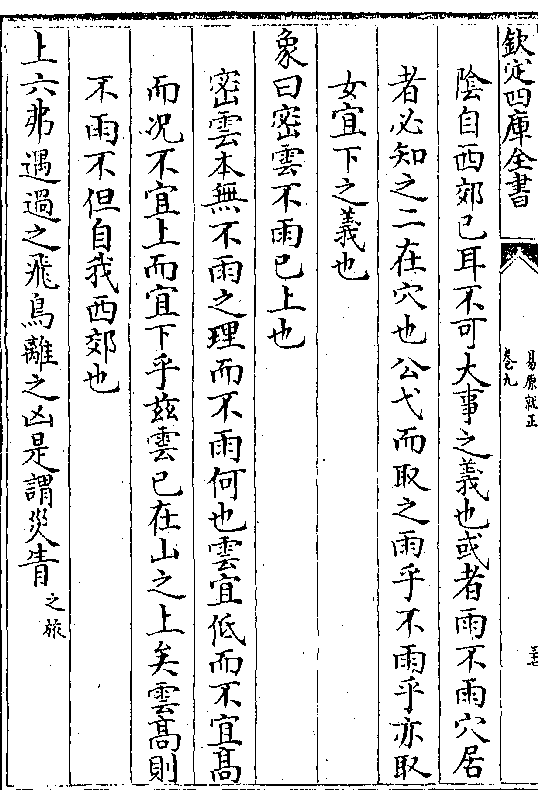 欽定四庫全書
易原就正
卷九
陰自西郊已耳不可大事之義也或者雨不雨穴居
者必知之二在穴也公弋而取之雨乎不雨乎亦取
女宜下之義也
象曰密雲不雨已上也
密雲本無不雨之理而不雨何也雲宜低而不宜髙
而况不宜上而宜下乎兹雲已在山之上矣雲髙則
不雨不但自我西郊也
上六弗遇過之飛鳥離之凶是謂災眚之旅